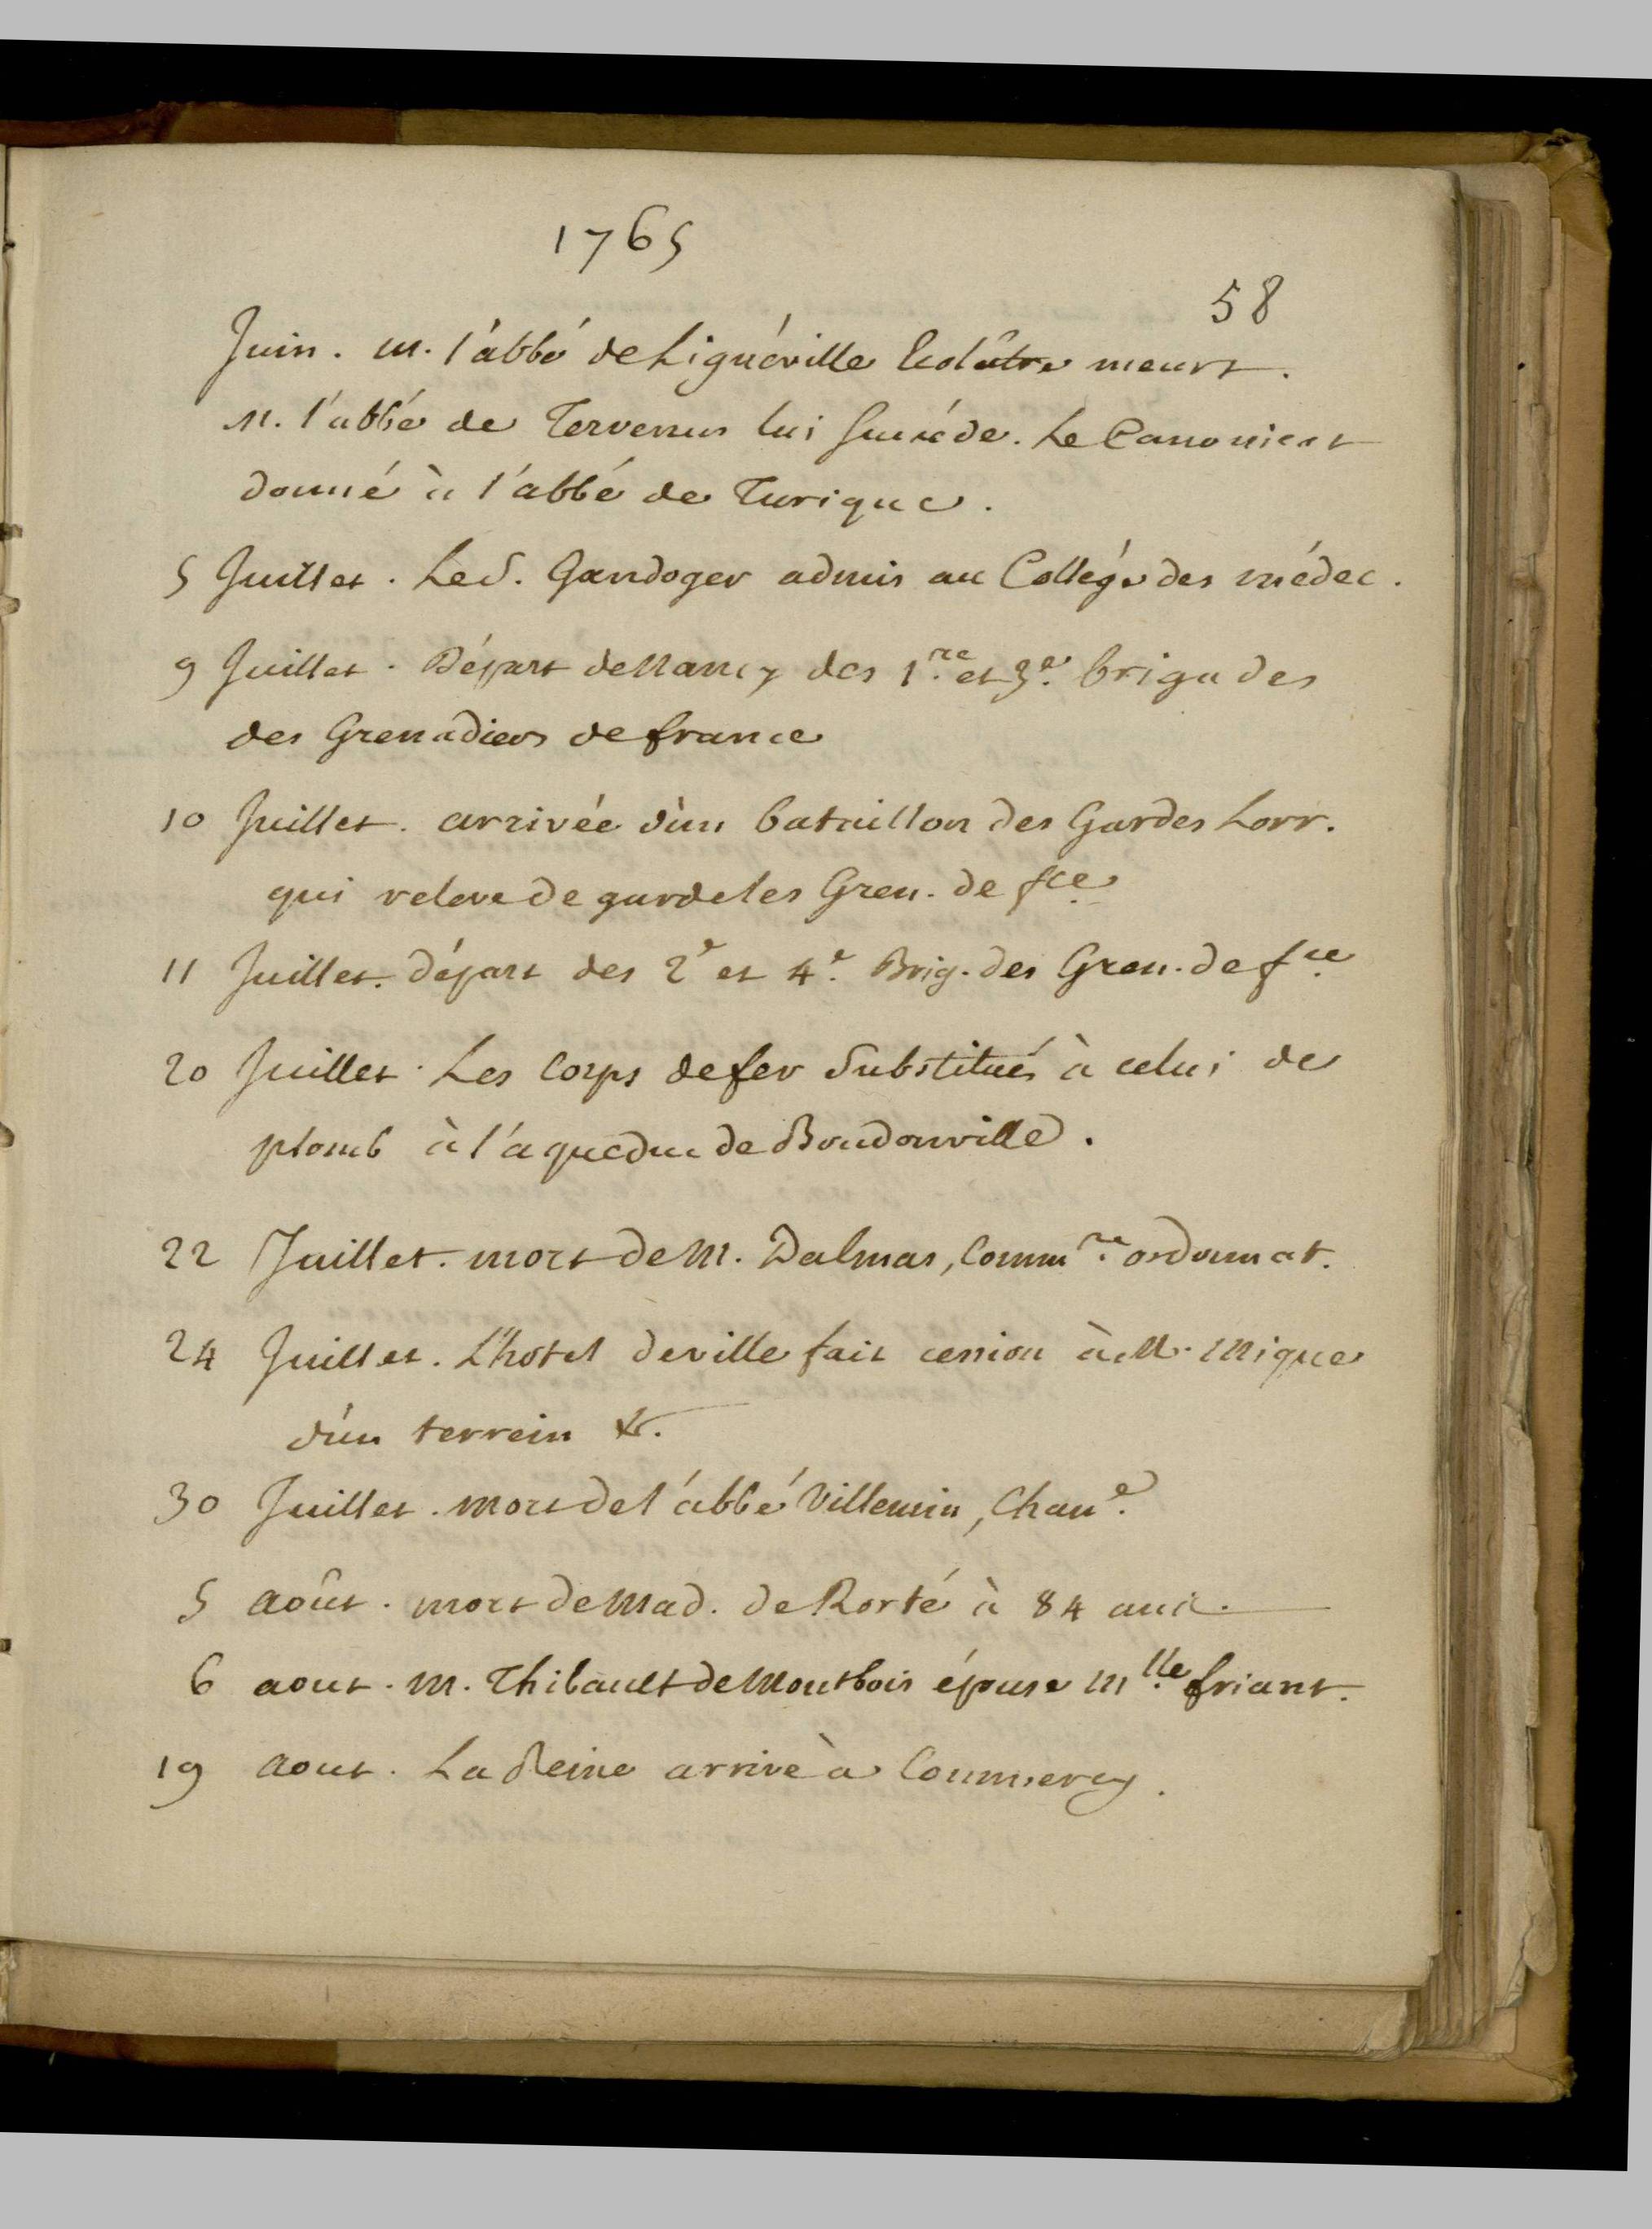 1765
58
Juin. M. l'abbé de Liguéville Ecolâtre meurt.
M. l'abbé de Tervenus lui succéde. Le Canonicat
donné à l'abbé de Turique.
5 Juillet. Le S. Gandoger admis au Collége des médec.
9 Juillet. Départ de Nancy des 1.re et 3.e brigades
des Grenadiers de france
10 Juillet. arrivée d'un bataillon des Gardes Lorr.
qui releve de garde les Gren. de fce
11 Juillet. départ des 2e et 4.e Brig. des Gren. de fce
20 Juillet. Les Corps de fer Substitués à celui de
plomb à l'aqueduc de Boudonville.
22 Juillet. mort de M. Dalmas, Comm.re ordonnat.
24 Juillet. L'hotel de ville fait cession à M. Mique
d'un terrein &.
30 Juillet. mort de l'abbé Villemin, Chan.e
5 août. mort de Mad. de Rorté à 84 ans.
6 aout. M. Thibault de Montbois épouse M.lle friant.
19 aout. La Reine arrive à Commercy.